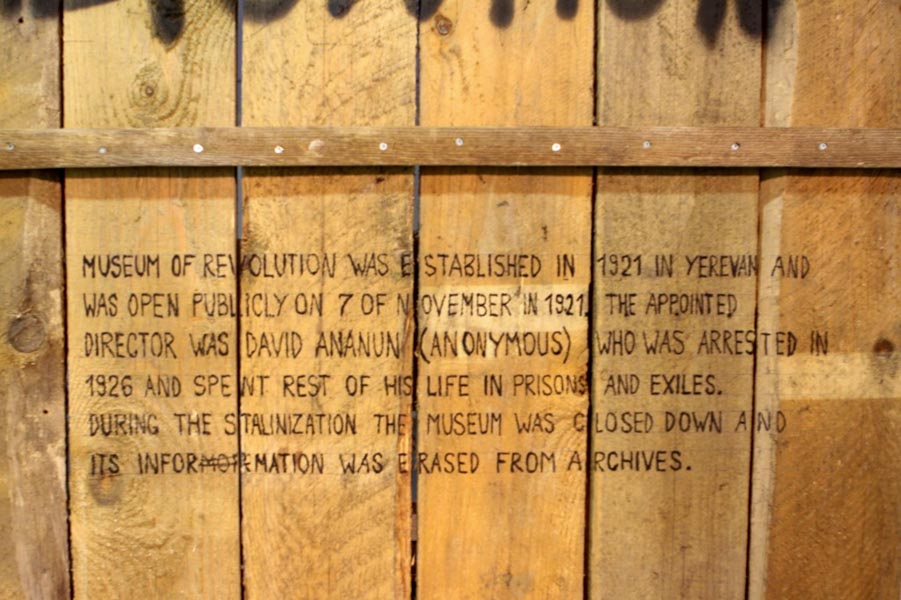 MUSEUM OF REVOLUTION WAS ESTABLISHED IN 1921 IN YEREVAN AND
WAS OPEN PUBLICLY ON 7 OF NOVEMBER IN 1921. THE APPOINTED
DIRECTOR WAS DAVID ANANUN (ANONYMOUS) WHO WAS ARRESTED IN
1926 AND SPENT REST OF HIS LIFE IN PRISONS AND EXILES.
DURING THE STALINIZATION THE MUSEUM WAS CLOSED DOWN AND
ITS INFORMATION WAS ERASED FROM ARCHIVES.